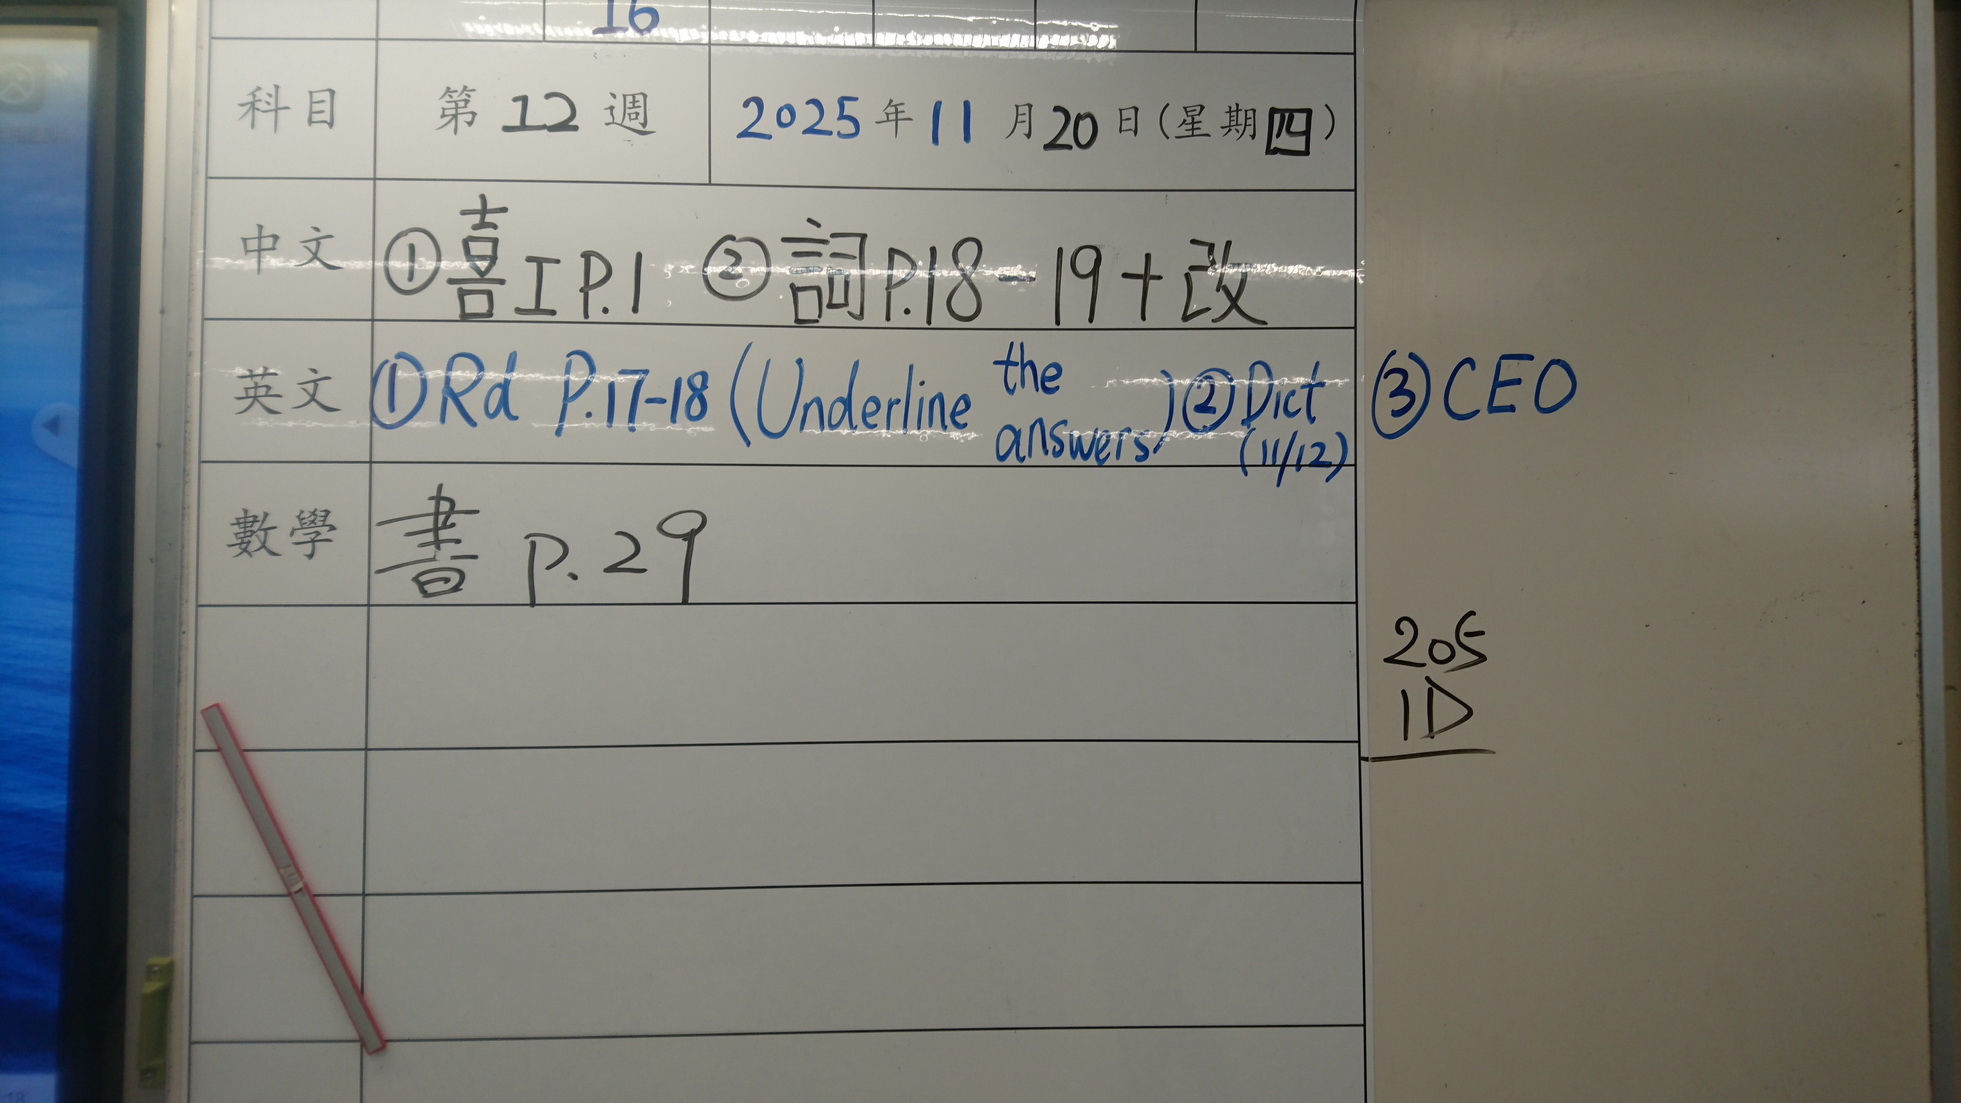 16
科目 第 12 週 2025 年 11 月 20 日 (星期四)
中文 ①喜工 P.1 ②詞 P.18-19+改
英文 ①Rd P.17-18 (Underline the answers) ②Dict (11/12) ③CEO
數學 書 p.29
205
1D